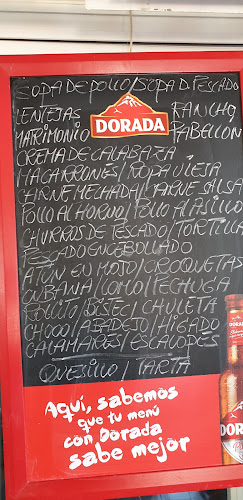 SOPA DE POLLO / SOPA D PESCADO
LENTEJAS RANCHO
DORADA
MATRIMONIO PABELLON
CREMA DE CALABAZA
MACARRONES / ROPA VIEJA
CARNE MECHADA / CARNE SALSA
POLLO AL HORNO / POLLO AL AJILLO
CHURROS DE PESCADO / TORTILLA
PESCADO ENCEBOLLADO
ATUN EN MOJO / CROQUETAS
CUBANA / LOMO / PECHUGA
POLLIT / BISTEC / CHULETA
CHOCO / ABADEJO / HIGADO
CALAMARES / ESCALOPES
QUESILLO / TARTA
Aquí, sabemos
que tu menú
con Dorada
sabe mejor
DORADA
DOR